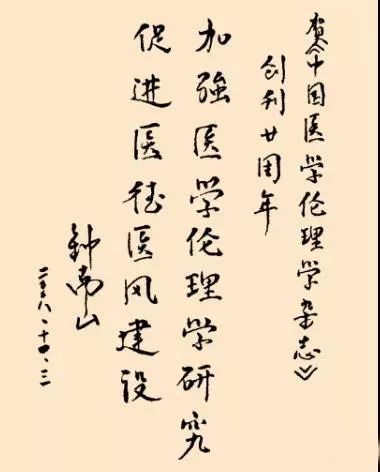 贺《中国医学伦理学杂志》
创刊廿周年
加強医学伦理学研究
促进医德医风建设
钟南山